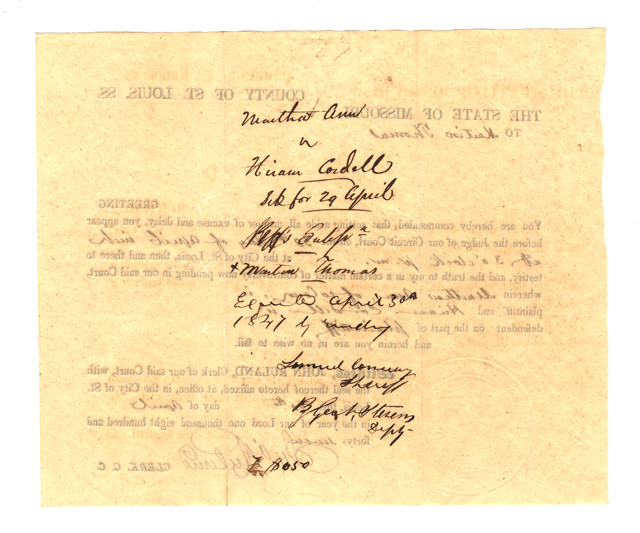 Martha Ann
v
Hiram Cordell
Set for 29 April
Plff's Subp
Martin Thomas
April 30th
1847 by
Samuel Conway
Sheriff
By Geo. Stevens
Depty
$0.50
COUNTY OF ST. LOUIS, SS.
THE STATE OF MISSOURI
TO Martin Thomas
GREETING
You are hereby commanded, that setting aside all manner of excuse and delay, you appear
before the Judge of our Circuit Court, on of April inst.
at 3 o'clock at the City of St. Louis, then and there to
testify, and the truth to say in a certain matter of now pending in our said Court
wherein Martha
plaintiff and Hiram Cordell
defendant on the part of
and herein you are in no wise to fail.
JOHN RULAND, Clerk of our said Court, with
the seal thereof hereto affixed, at office, in the City of St.
day of April
in the year of our Lord one thousand eight hundred and
forty- seven
CLERK, C. C.